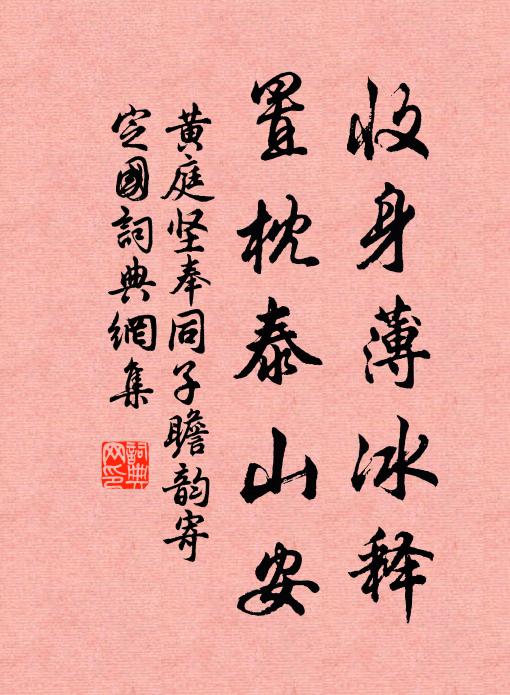 收身薄冰释
置枕泰山安
黄庭坚奉同子瞻韵寄
定國詞典網集
詞典
网印